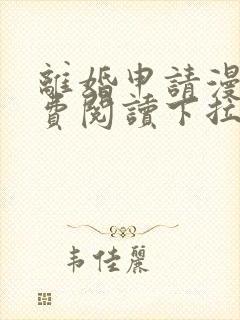 離婚申請漫
費閱讀下拉
韦佳麗